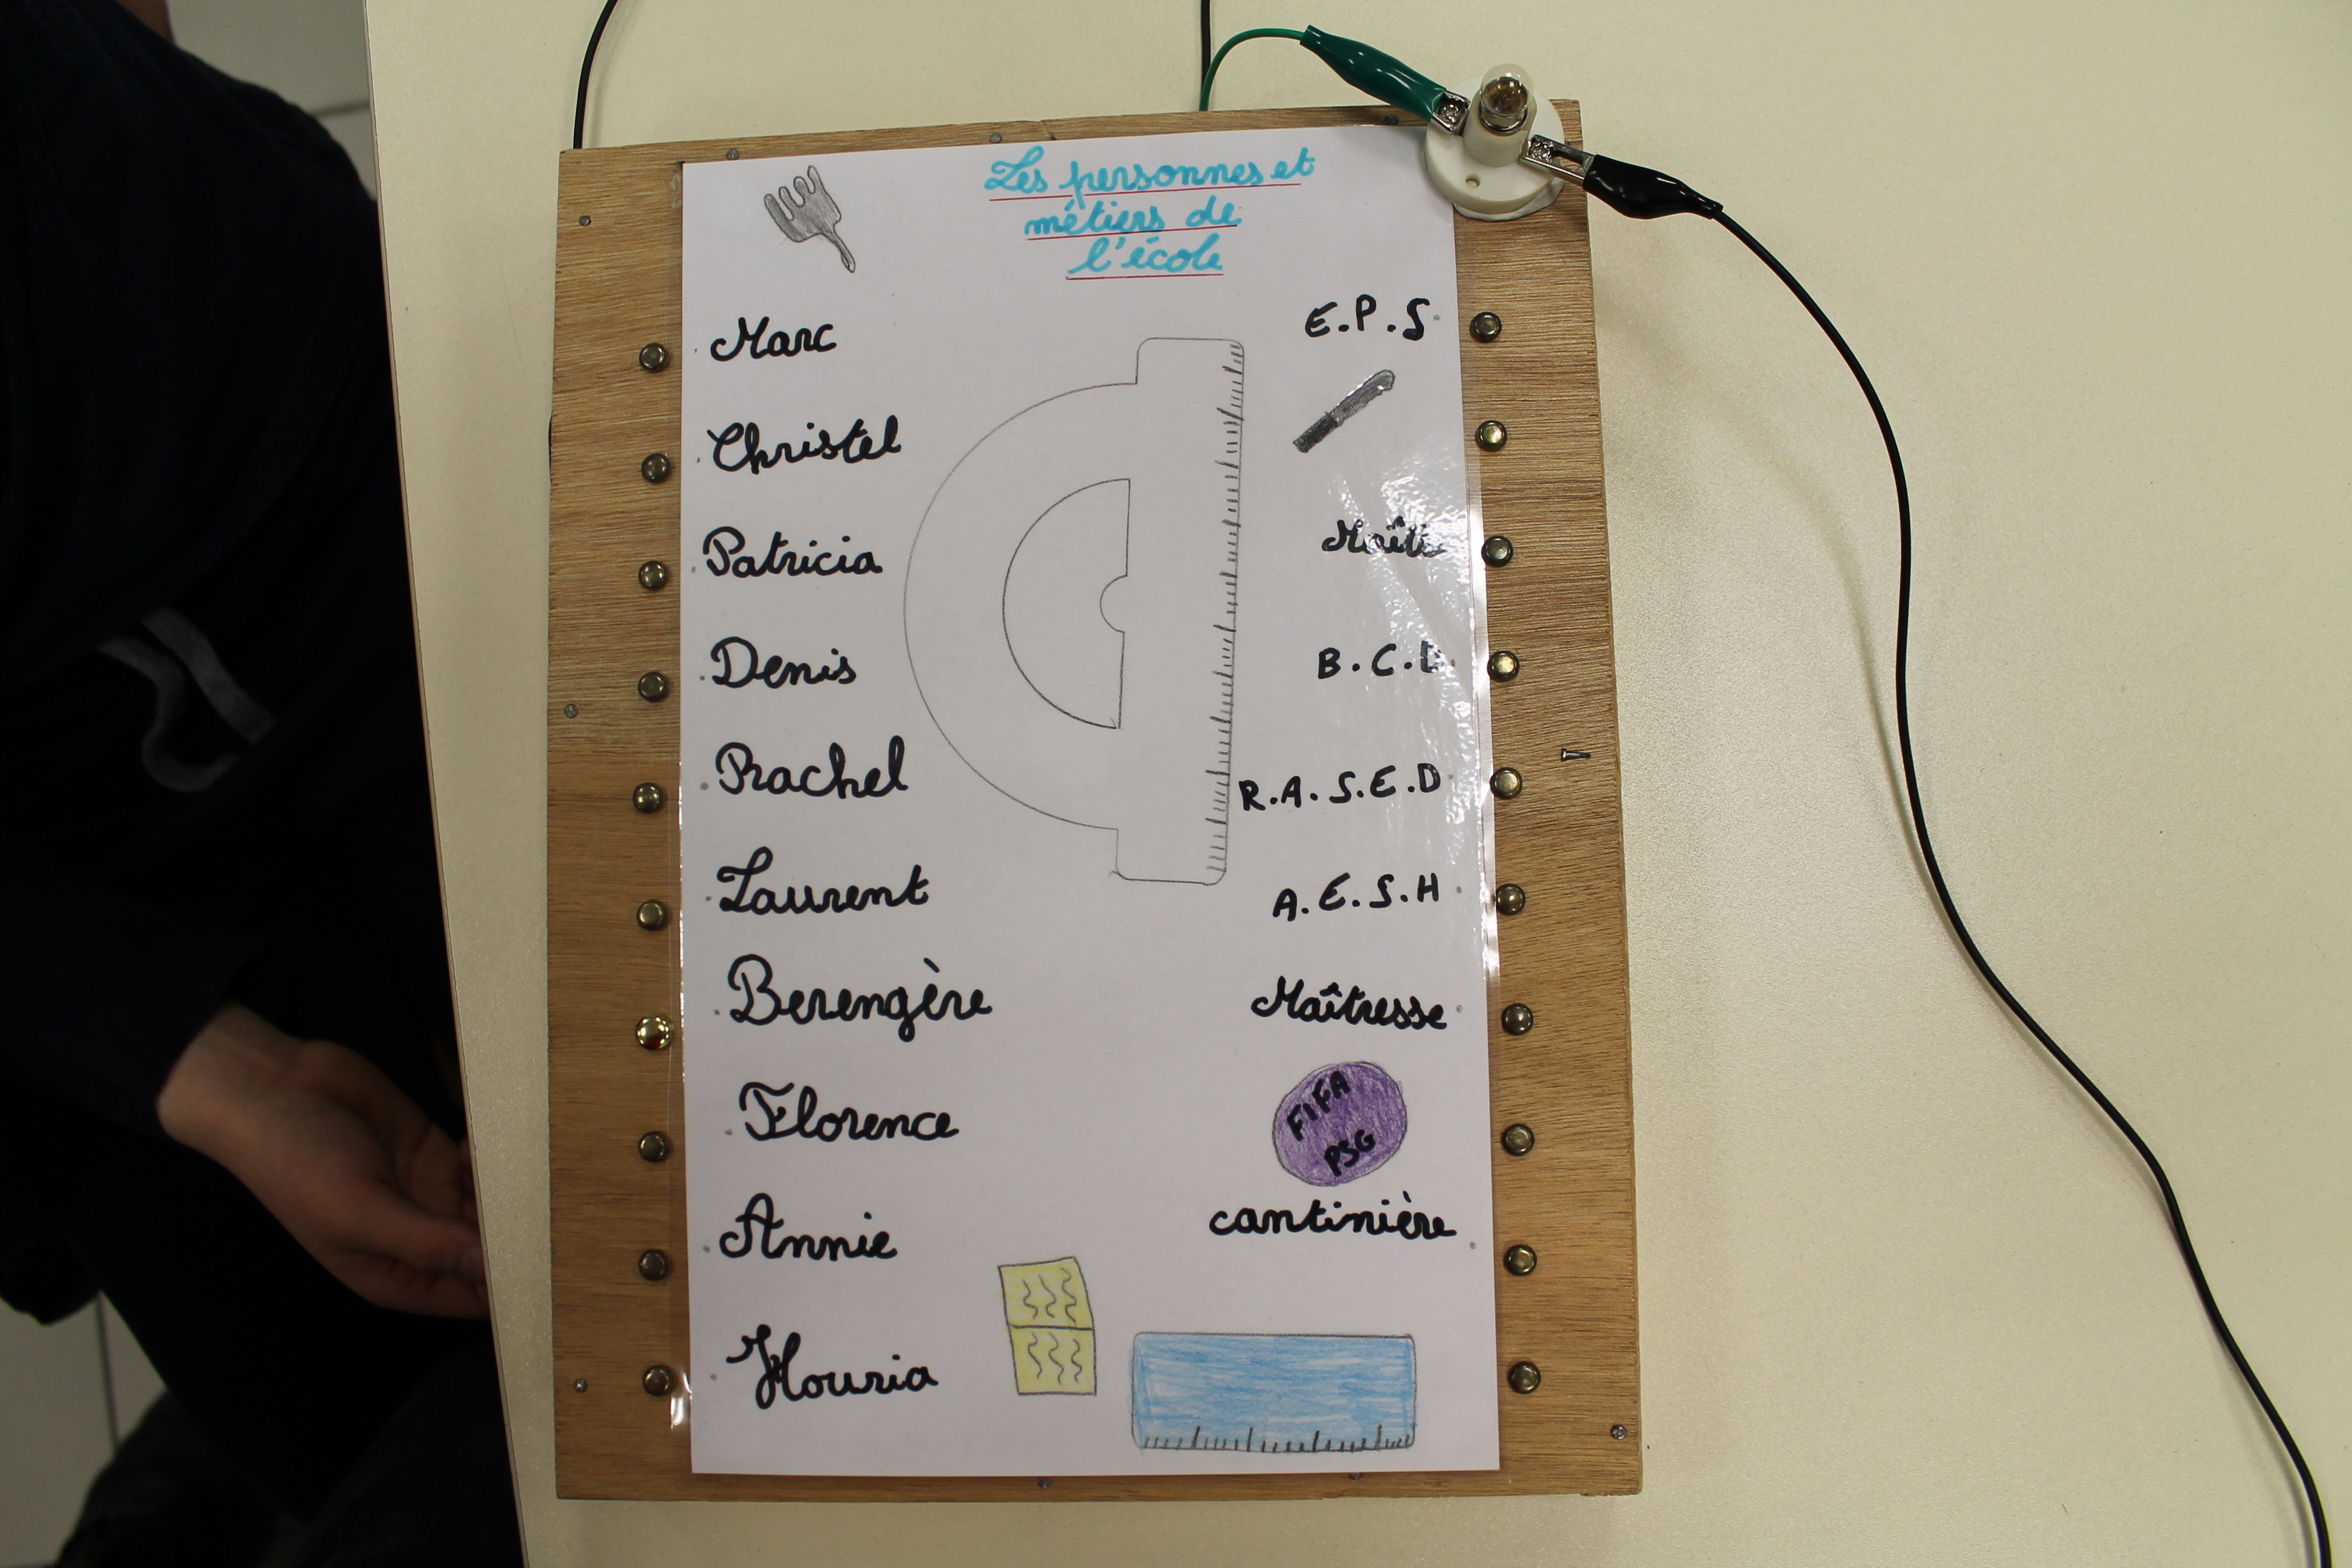 Les personnes et
métiers de
l'école
Marc
E.P.S
Christel
Patricia
Denis
B.C.D
Rachel
R.A.S.E.D
Laurent
A.E.S.H
Berengère
Maîtresse
Florence
FIFA
PSG
Annie
cantinière
Houria